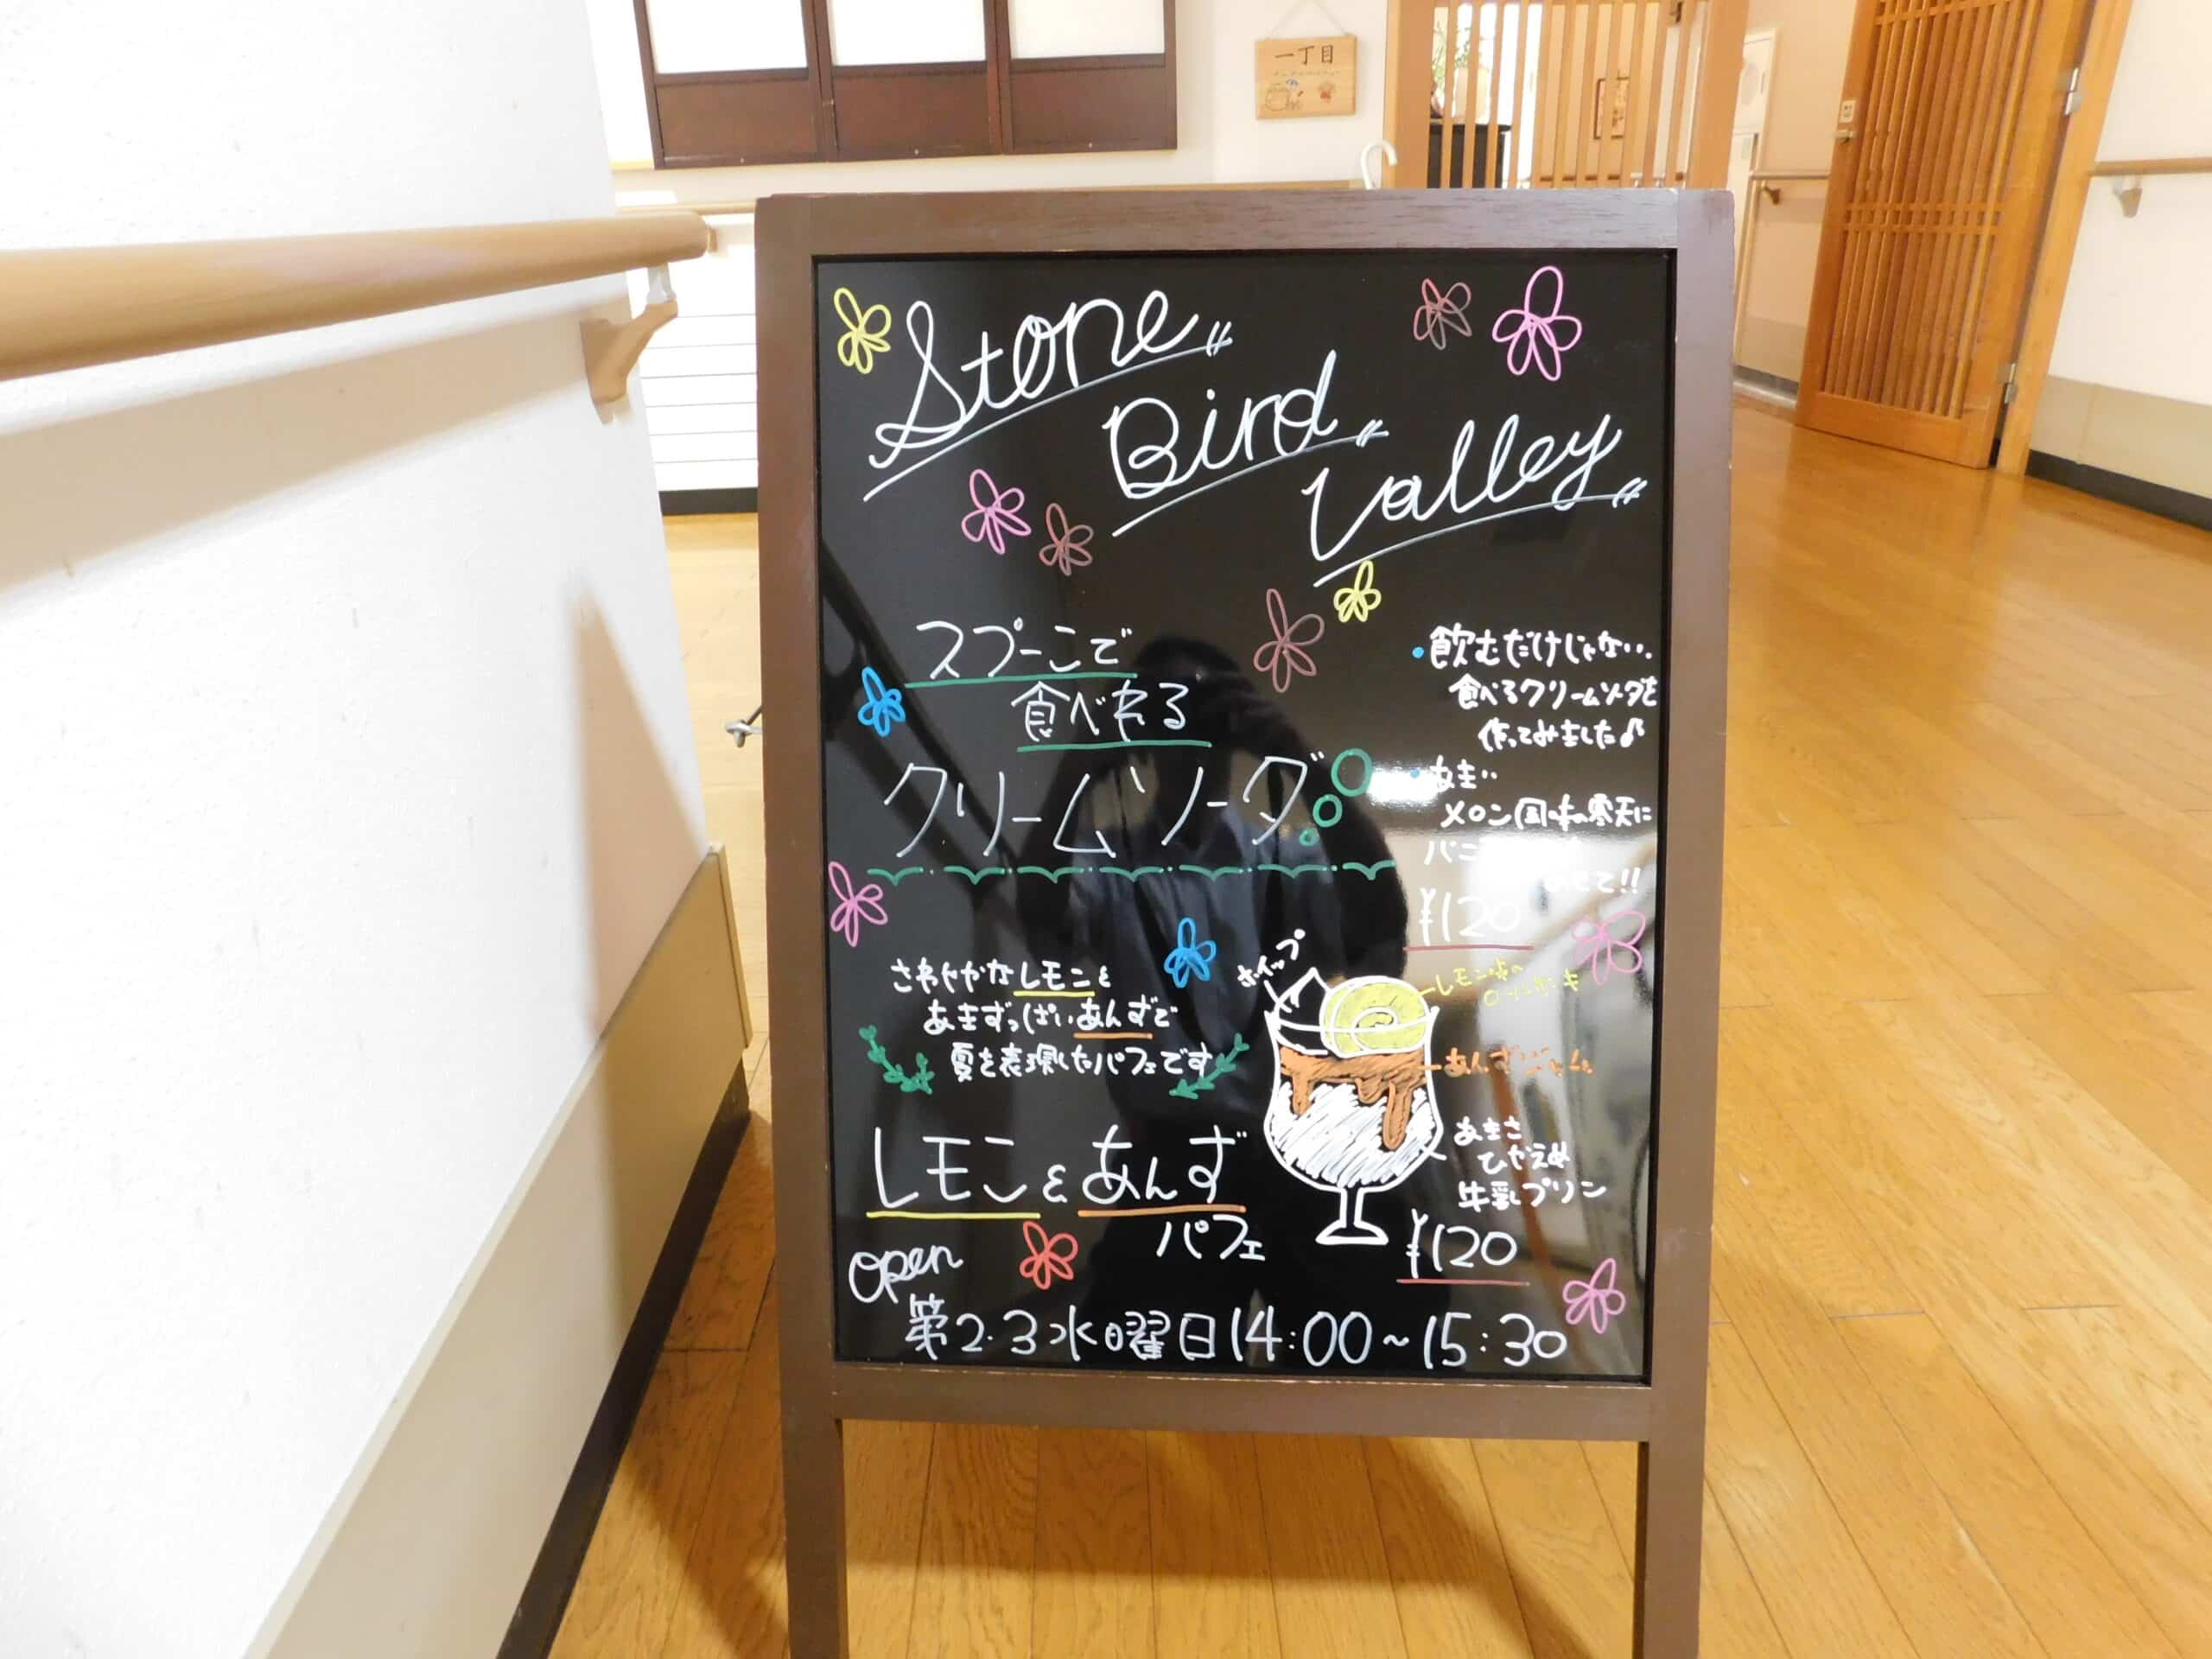 一丁目
Stone
Bird
Valley
スプーンで
食べれる
クリームソーダ
・飲むだけじゃない。
食べるクリームソーダを
作ってみました♪
・あまい
メロン風味の寒天に
バニ
せて!!
¥120
さわやかなレモンと
あまずっぱいあんずで
夏を表現したパフェです
ホイップ
レモン味の
ロールケーキ
あんずジャム
あまさ
ひかえめ
牛乳プリン
レモンとあんず
パフェ
¥120
open
第2.3水曜日14:00~15:30